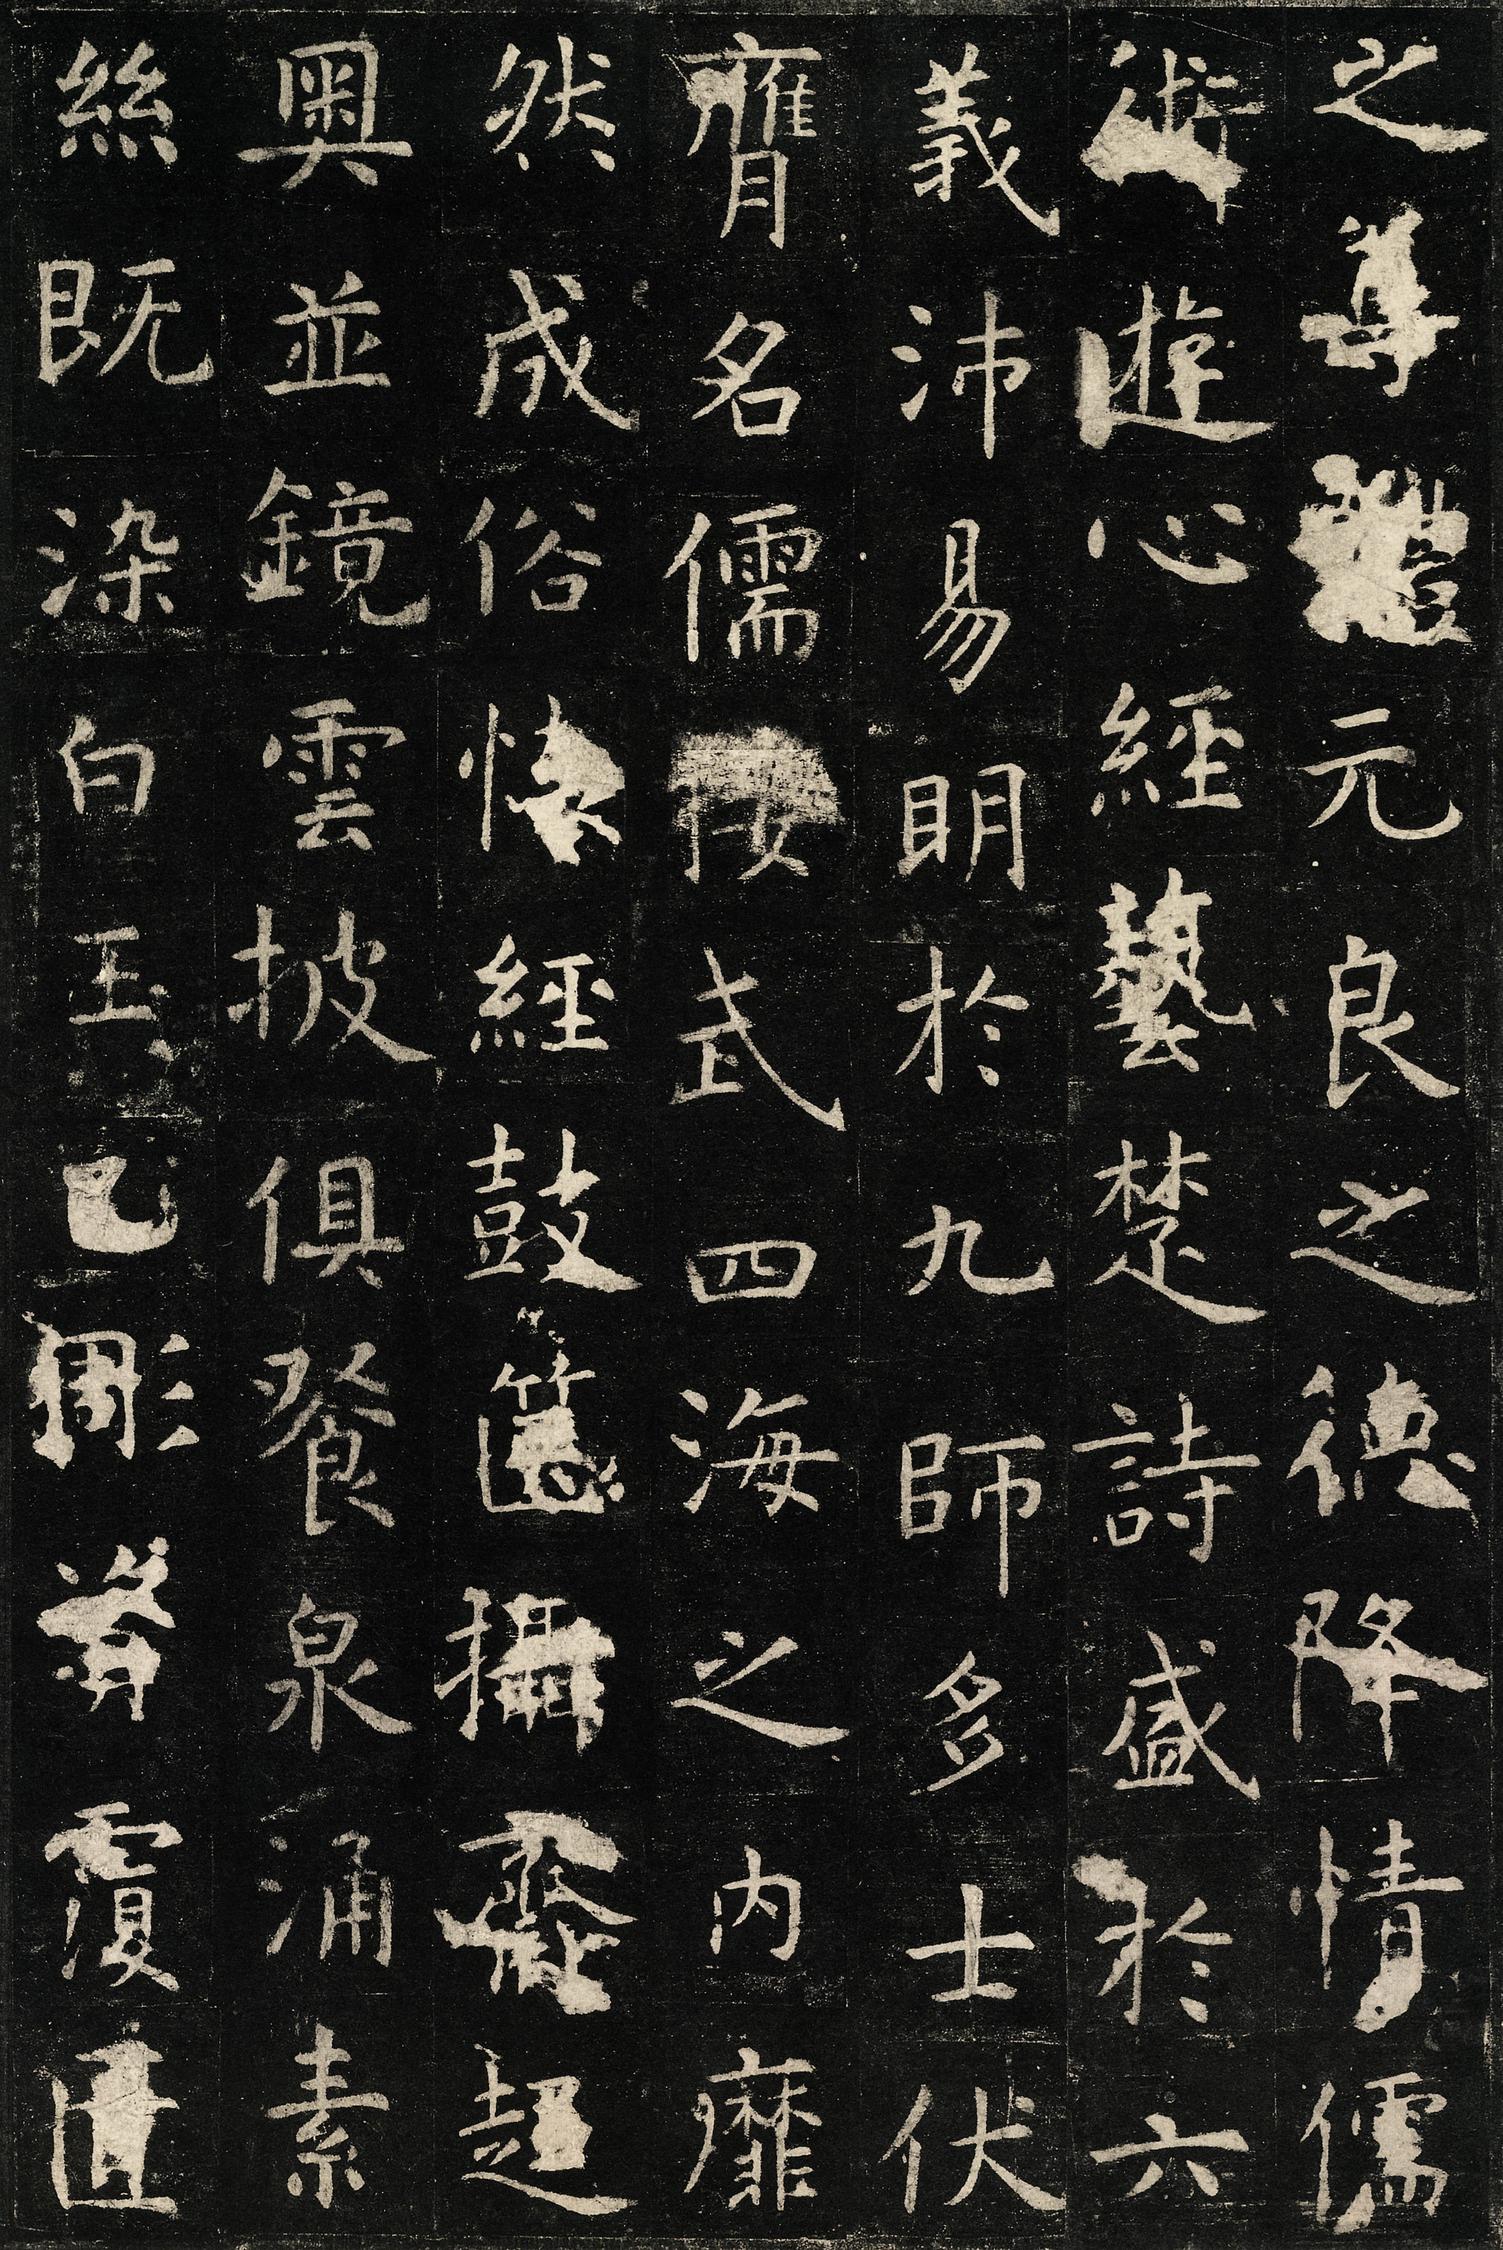 之尊體元良之德降情儒
術遊心經藝楚詩盛於六
義沛易明於九師多士伏
膺名儒接武四海之內靡
然成俗懷經鼓篋攝齊趍
奧並鏡雲披俱餐泉涌素
絲既染白玉已彫資覆匱